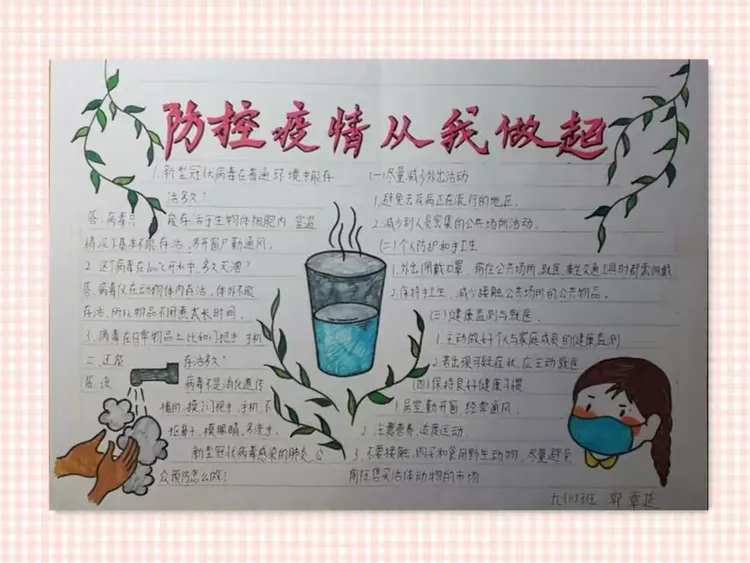 防控疫情从我做起
1.新型冠状病毒在普通环境中能存
活多久?
答:病毒只能存活于生物体细胞内,室温
情况下基本不能存活,多开窗户勤通风。
2.这个病毒在100℃开水中,多久灭活?
答:病毒仅在动物体内存活,体外不能
存活,所以物品不用煮太长时间。
3.病毒在日常物品上比如门把手 手机
上 还能存活多久?
答:没 病毒不是消化道传
播的,摸门把手,手机,不
抠鼻子,摸眼睛,多洗手。
新型冠状病毒感染的肺炎,公
众预防怎么做?
(一)尽量减少外出活动
1.避免去疫病正在流行的地区。
2.减少到人员密集的公共场所活动。
(二)个人防护和手卫生
1.外出佩戴口罩,
2.保持手卫生,减少接触公共场所的公共物品。
(三)健康监测与就医
1.主动做好个人与家庭成员的健康监测
2.若出现可疑症状,应主动就医
(四)保持良好健康习惯
1.居室勤开窗 经常通风。
2.注意营养,适度运动。
3.不要接触、购买和食用野生动物,尽量避免
前往售卖活体动物的市场